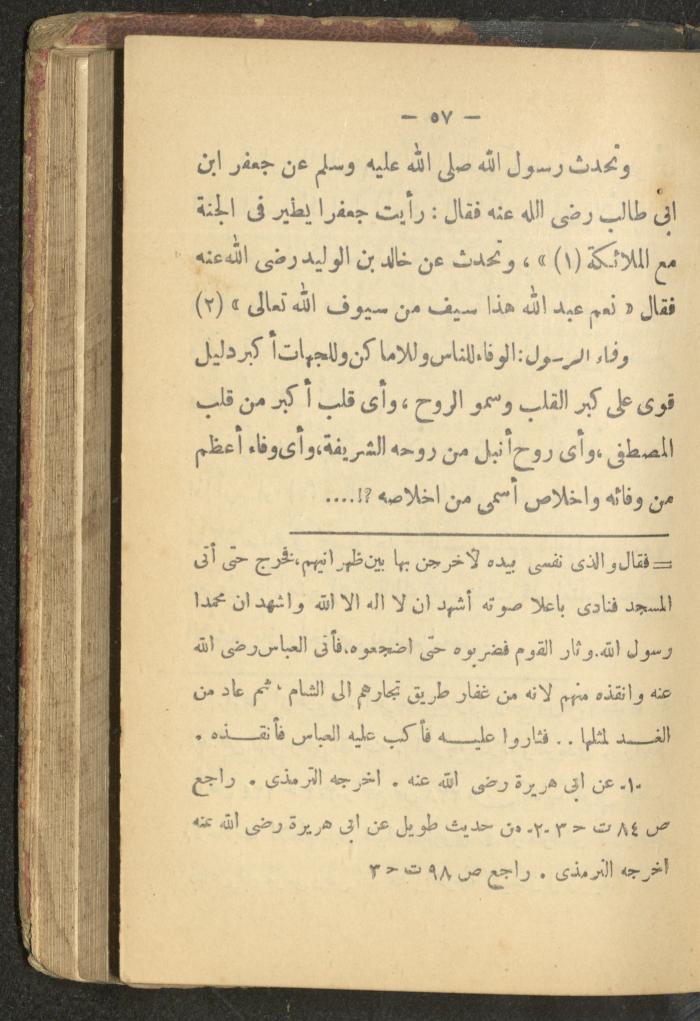 — ٥٧ —
وتحدث رسول الله صلى الله عليه وسلم عن جعفر ابن
ابى طالب رضى الله عنه فقال : رأيت جعفرا يطير فى الجنة
مع الملائكة (١) » ، وتحدث عن خالد بن الوليد رضى الله عنه
فقال « نعم عبد الله هذا سيف من سيوف الله تعالى » (٢)
وفاء الرسول : الوفاء للناس وللاماكن وللجهات أكبر دليل
قوى على كبر القلب وسمو الروح ، وأى قلب أكبر من قلب
المصطفى ، وأى روح أنبل من روحه الشريفة، وأى وفاء أعظم
من وفائه واخلاص أسمى من اخلاصه ؟!....
= فقال والذى نفسى بيده لاخرجن بها بين ظهرانيهم، فخرج حتى أتى
المسجد فنادى باعلا صوته أشهد ان لا اله الا الله واشهد ان محمدا
رسول الله. وثار القوم فضربوه حتى اضجعوه، فأتى العباس رضى الله
عنه وانقذه منهم لانه من غفار طريق تجارهم الى الشام ، ثم عاد من
الغد لمثلها . . فثاروا عليه فأكب عليه العباس فأنقذه .
-١- عن ابى هريرة رضى الله عنه . اخرجه الترمذى . راجع
ص ٨٤ ت ح ٣ -٢- من حديث طويل عن ابى هريرة رضى الله عنه
اخرجه الترمذى . راجع ص ٩٨ ت ح ٣